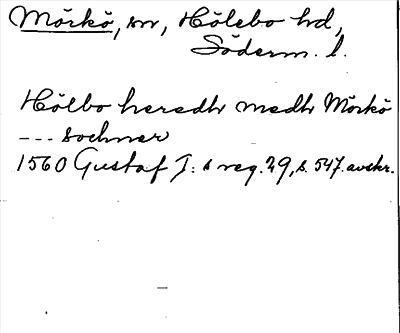 Mörkö, sn, Hölebo hd,
Söderm. l.
Hölbo heredh medh Mörkö
--- sochner
1560 Gustaf I: s reg. 29, s. 547. avskr.